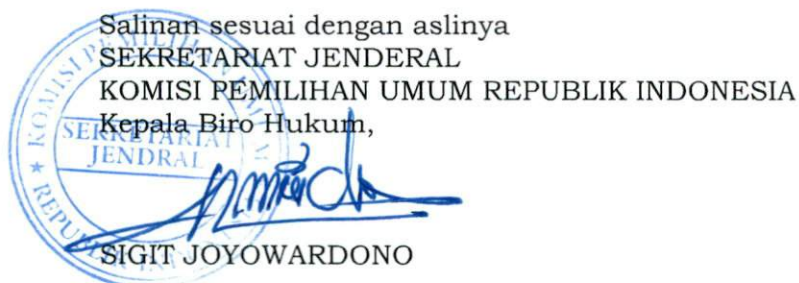 Salinan sesuai dengan aslinya
SEKRETARIAT JENDERAL
KOMISI PEMILIHAN UMUM REPUBLIK INDONESIA
Kepala Biro Hukum,
SEKRETARIAT
JENDRAL
SIGIT JOYOWARDONO